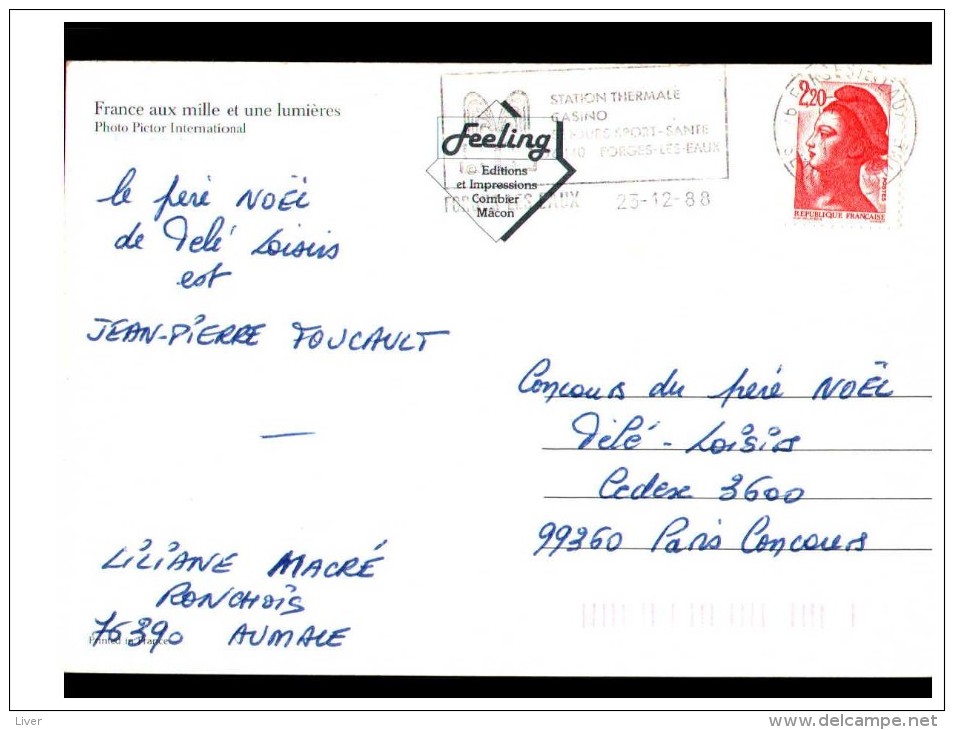 France aux mille et une lumières
Photo Pictor International
STATION THERMALE
CASINO
SPORT-SANTE
FORGES-LES-EAUX
LES EAUX 23-12-88
Feeling
Editions
et Impressions
Combier
Mâcon
2,20
POSTES
REPUBLIQUE FRANÇAISE
le père NOËL
de Télé Loisirs
est
JEAN-PIERRE FOUCAULT
Concours du père NOËL
Télé-Loisirs
Cedex 3600
99360 Paris Concours
LILIANE MACRÉ
RONCHOIS
76390 AUMALE
Printed in France
Liver
www.delcampe.net